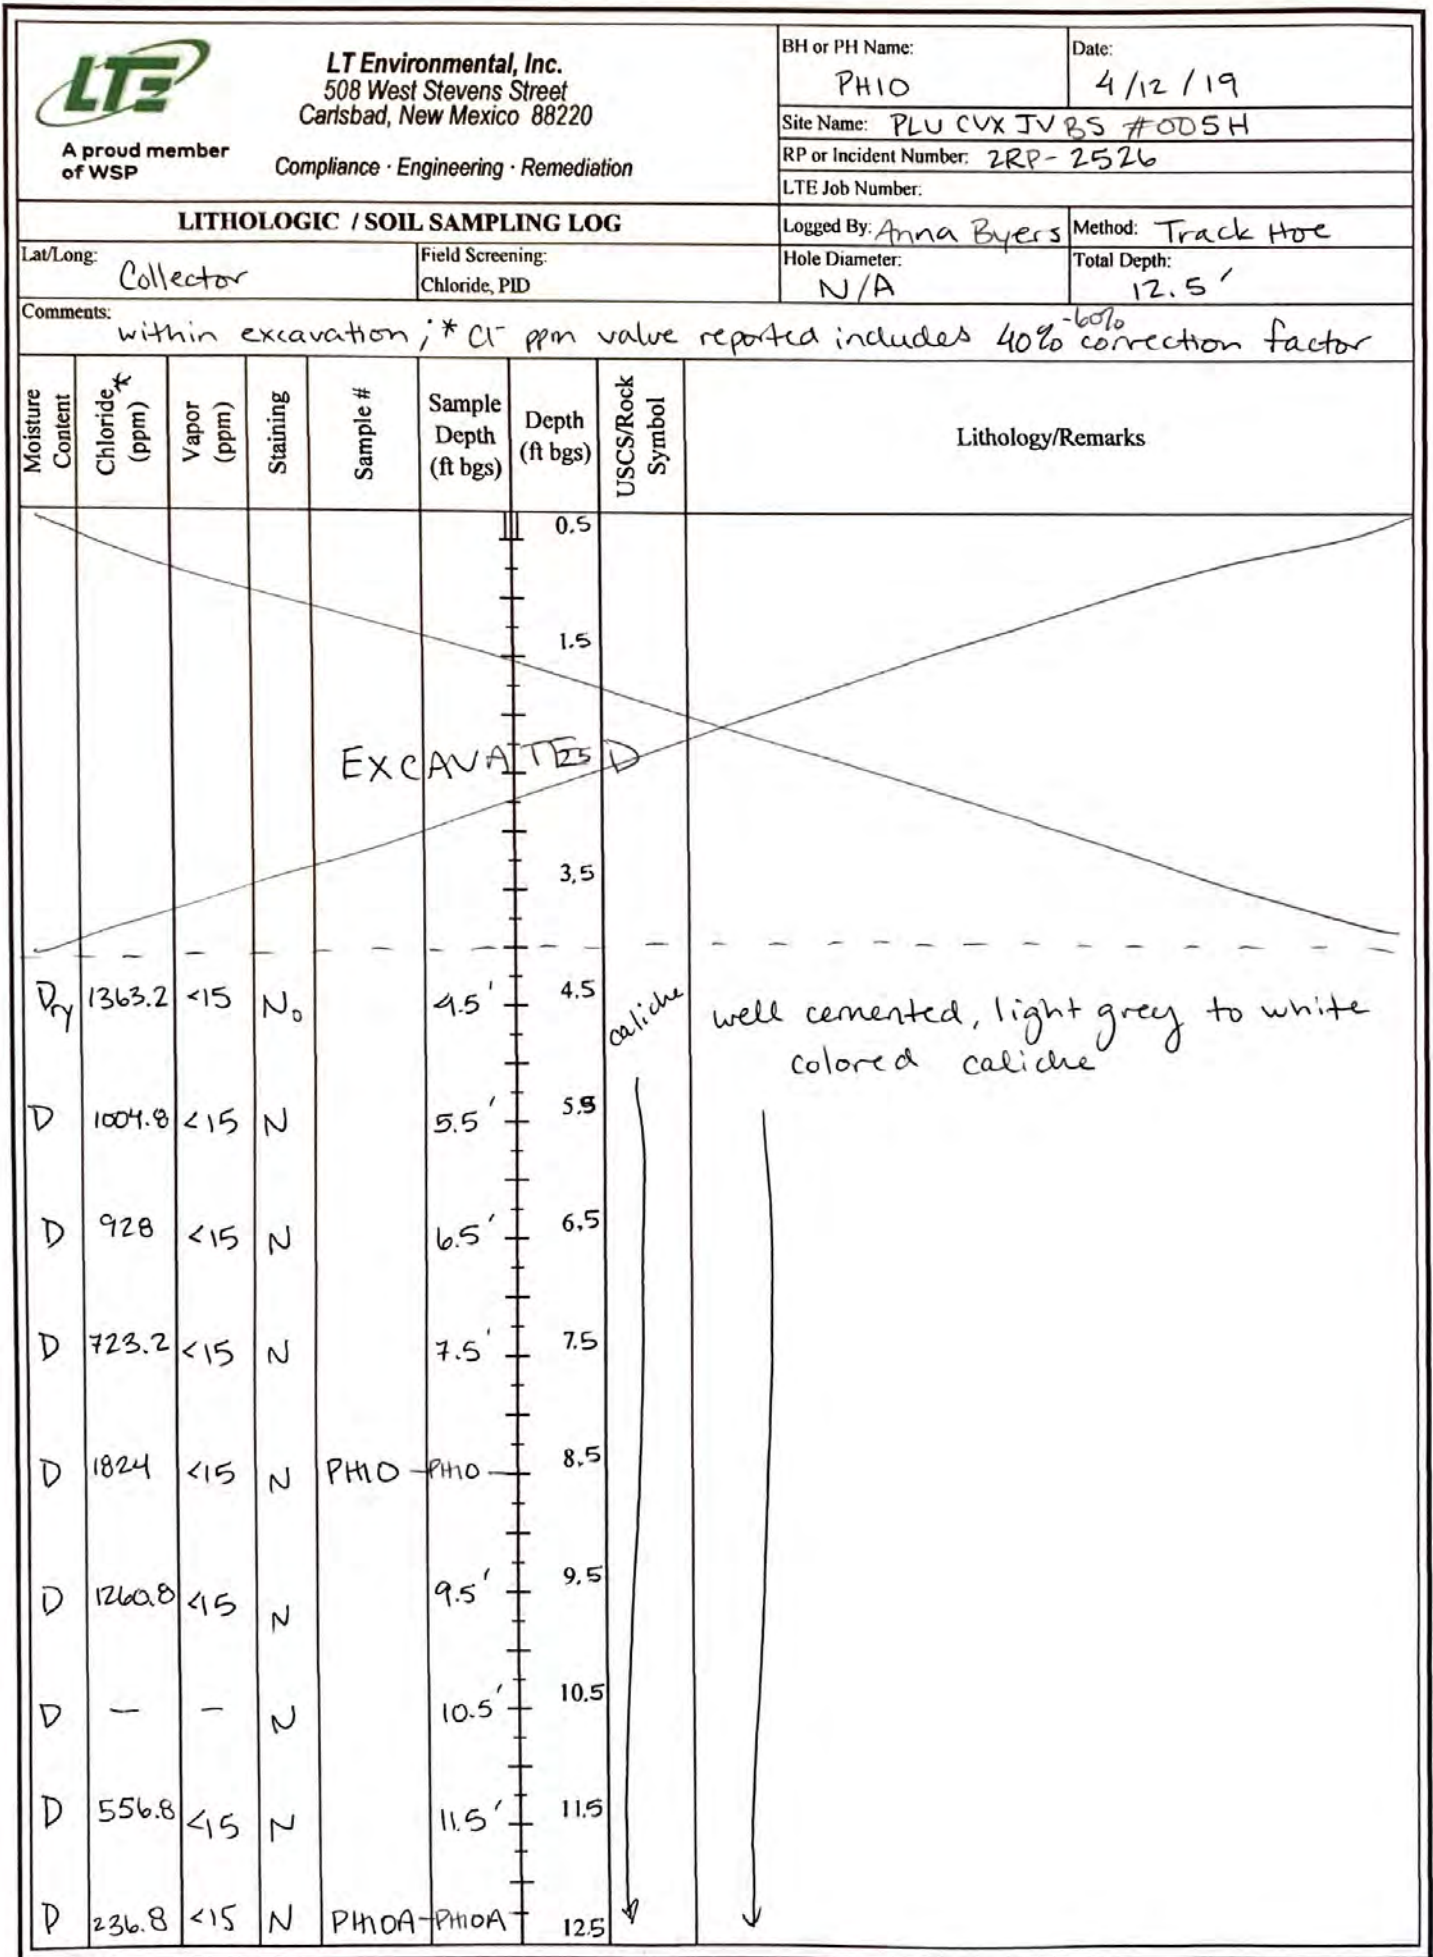 LTE
A proud member
of WSP
LT Environmental, Inc.
508 West Stevens Street
Carlsbad, New Mexico 88220
Compliance · Engineering · Remediation
BH or PH Name:
PH10
Date:
4/12/19
Site Name: PLU CVX JV BS #005H
RP or Incident Number: 2RP-2526
LTE Job Number:
LITHOLOGIC / SOIL SAMPLING LOG
Logged By: Anna Byers
Method: Track Hoe
Lat/Long:
Collector
Field Screening:
Chloride, PID
Hole Diameter:
N/A
Total Depth:
12.5'
Comments:
within excavation; * Cl- ppm value reported includes 40%-60% correction factor
Moisture Content
Chloride* (ppm)
Vapor (ppm)
Staining
Sample #
Sample Depth (ft bgs)
Depth (ft bgs)
USCS/Rock Symbol
Lithology/Remarks
0.5
1.5
EXCAVATED
2.5
3.5
Dry 1363.2 <15 No 4.5' 4.5 caliche well cemented, light grey to white
colored caliche
D 1004.8 <15 N 5.5' 5.5
D 928 <15 N 6.5' 6.5
D 723.2 <15 N 7.5' 7.5
D 1824 <15 N PH10 PH10 8.5
D 1260.8 <15 N 9.5' 9.5
D - - N 10.5' 10.5
D 556.8 <15 N 11.5' 11.5
D 236.8 <15 N PH10A PH10A 12.5